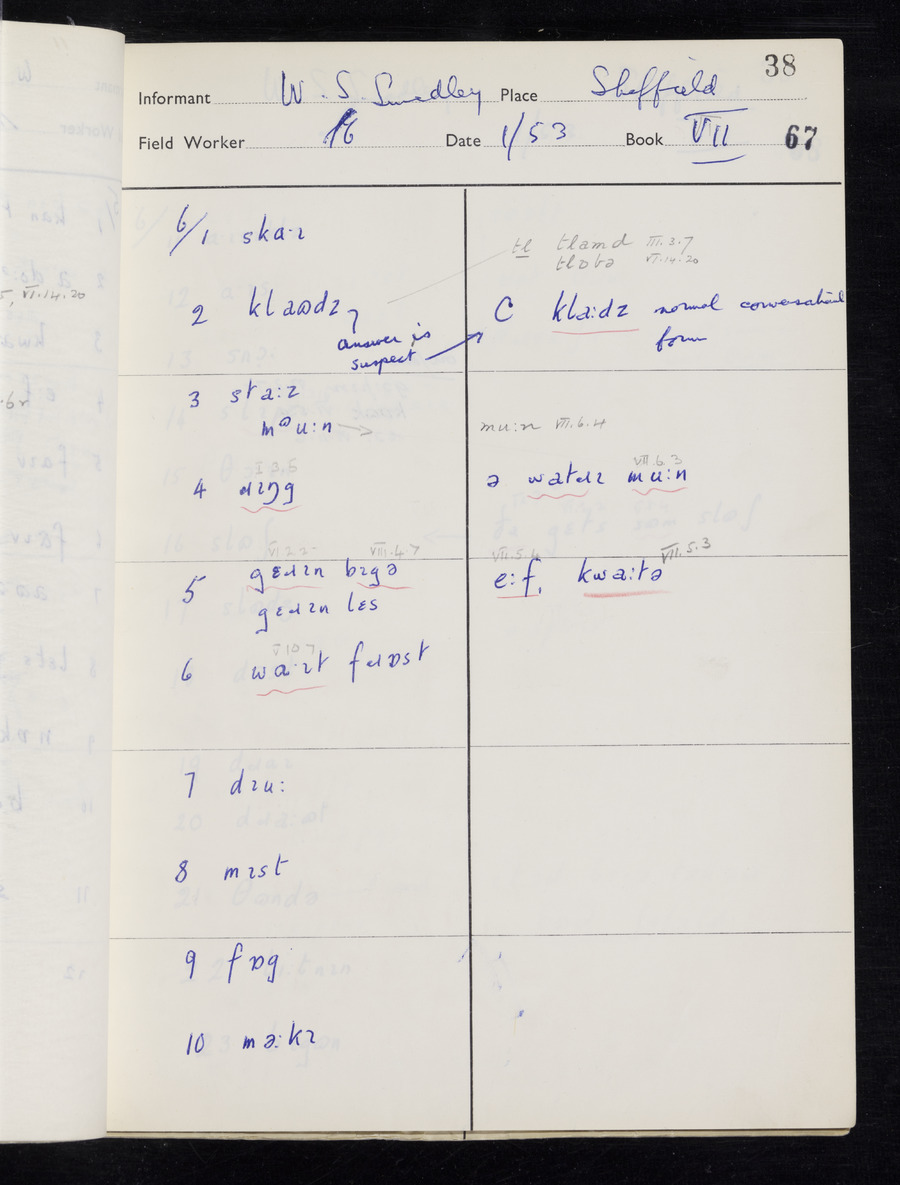 38
Informant W. S. Smedley Place Sheffield
Field Worker Date 1/53 Book VII 67
6/1 skaːɪ
tl tlamd III.3.7
tlɒbə VI.14.20
2 klaʊdz
answer is
suspect
C klaːdz normal conversational
form
3 staːz
mᵊuːn
muːn VII.6.4
I 3.5
4 ɹɪŋg
VII.6.3
ə watəɹ muːn
VI.2.2 VIII.4.7
5 gɛɹɪn bɪgə
gɛɹɪn lɛs
VII.5.4 VII.5.3
eːf, kwaːtə
V 10 7
6 waːɪt fɹɒst
7 dɪuː
8 mɪst
9 fɒg
10 məːkɪ